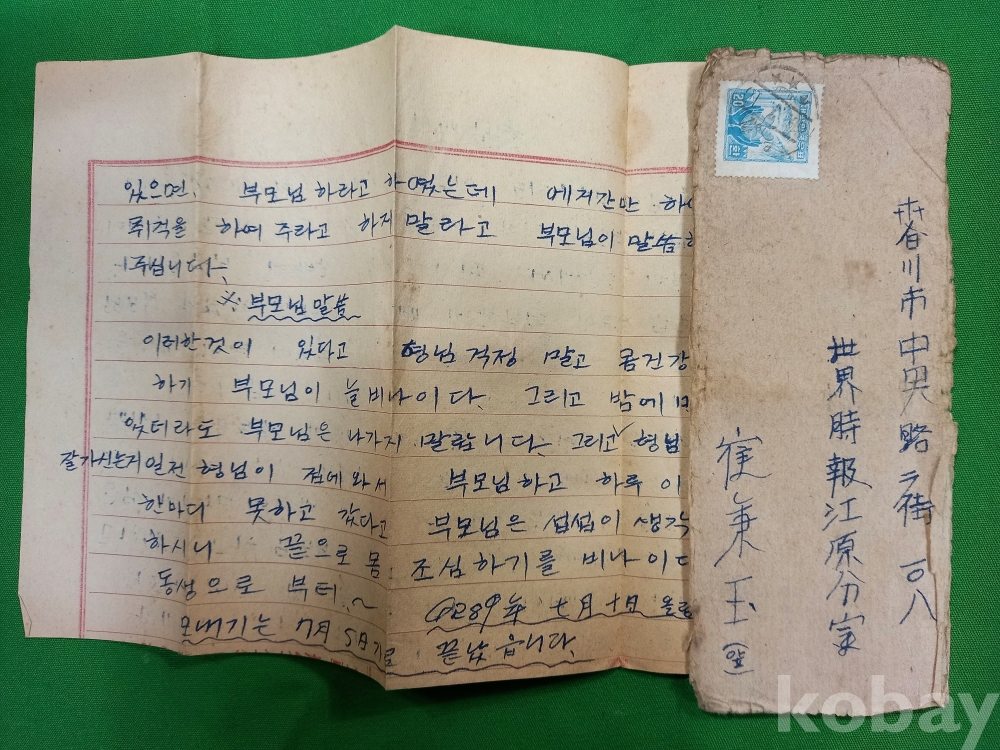 있으면, 부모님 하라고 하였는데 에저간만 하
취직을 하여 주라고 하지 말라고 부모님이 말씀
주십니다.
※ 부모님말씀
이러한것이 있다고 형님 걱정 말고 몸건강
하기 부모님이 늘비나이다. 그리고 밤에
있더라도 부모님은 나가지 말랍니다. 그리고 형님
잘가신는지 일전 형님이 집에 와서 부모님하고 하루 이
한마디 못하고 갔다고 부모님은 섭섭이 생각
하시니 끝으로 몸 조심하기를 비나이다
동생으로 부터 ~
4289年 七月 十日 올림
모내기는 7月 5日 끝났읍니다.
20
春川市 中央路 二街 一○八
世界時報江原分室
秉玉
kobay